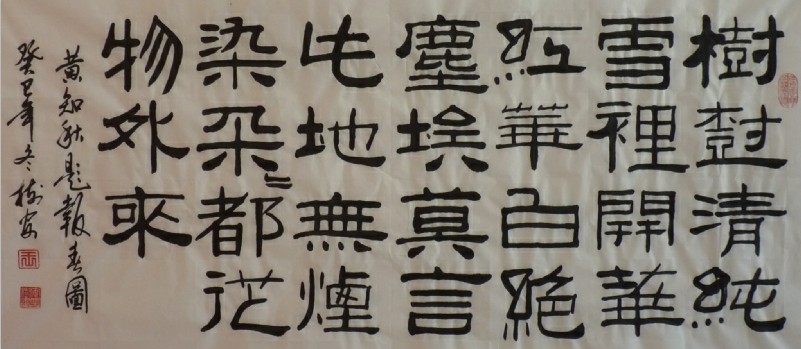 樹尌清純
雪裡開華
紅華白絕
塵埃莫言
此地無煙
染朵〻都從
物外來
黃知秋題報春圖
癸巳年冬樹